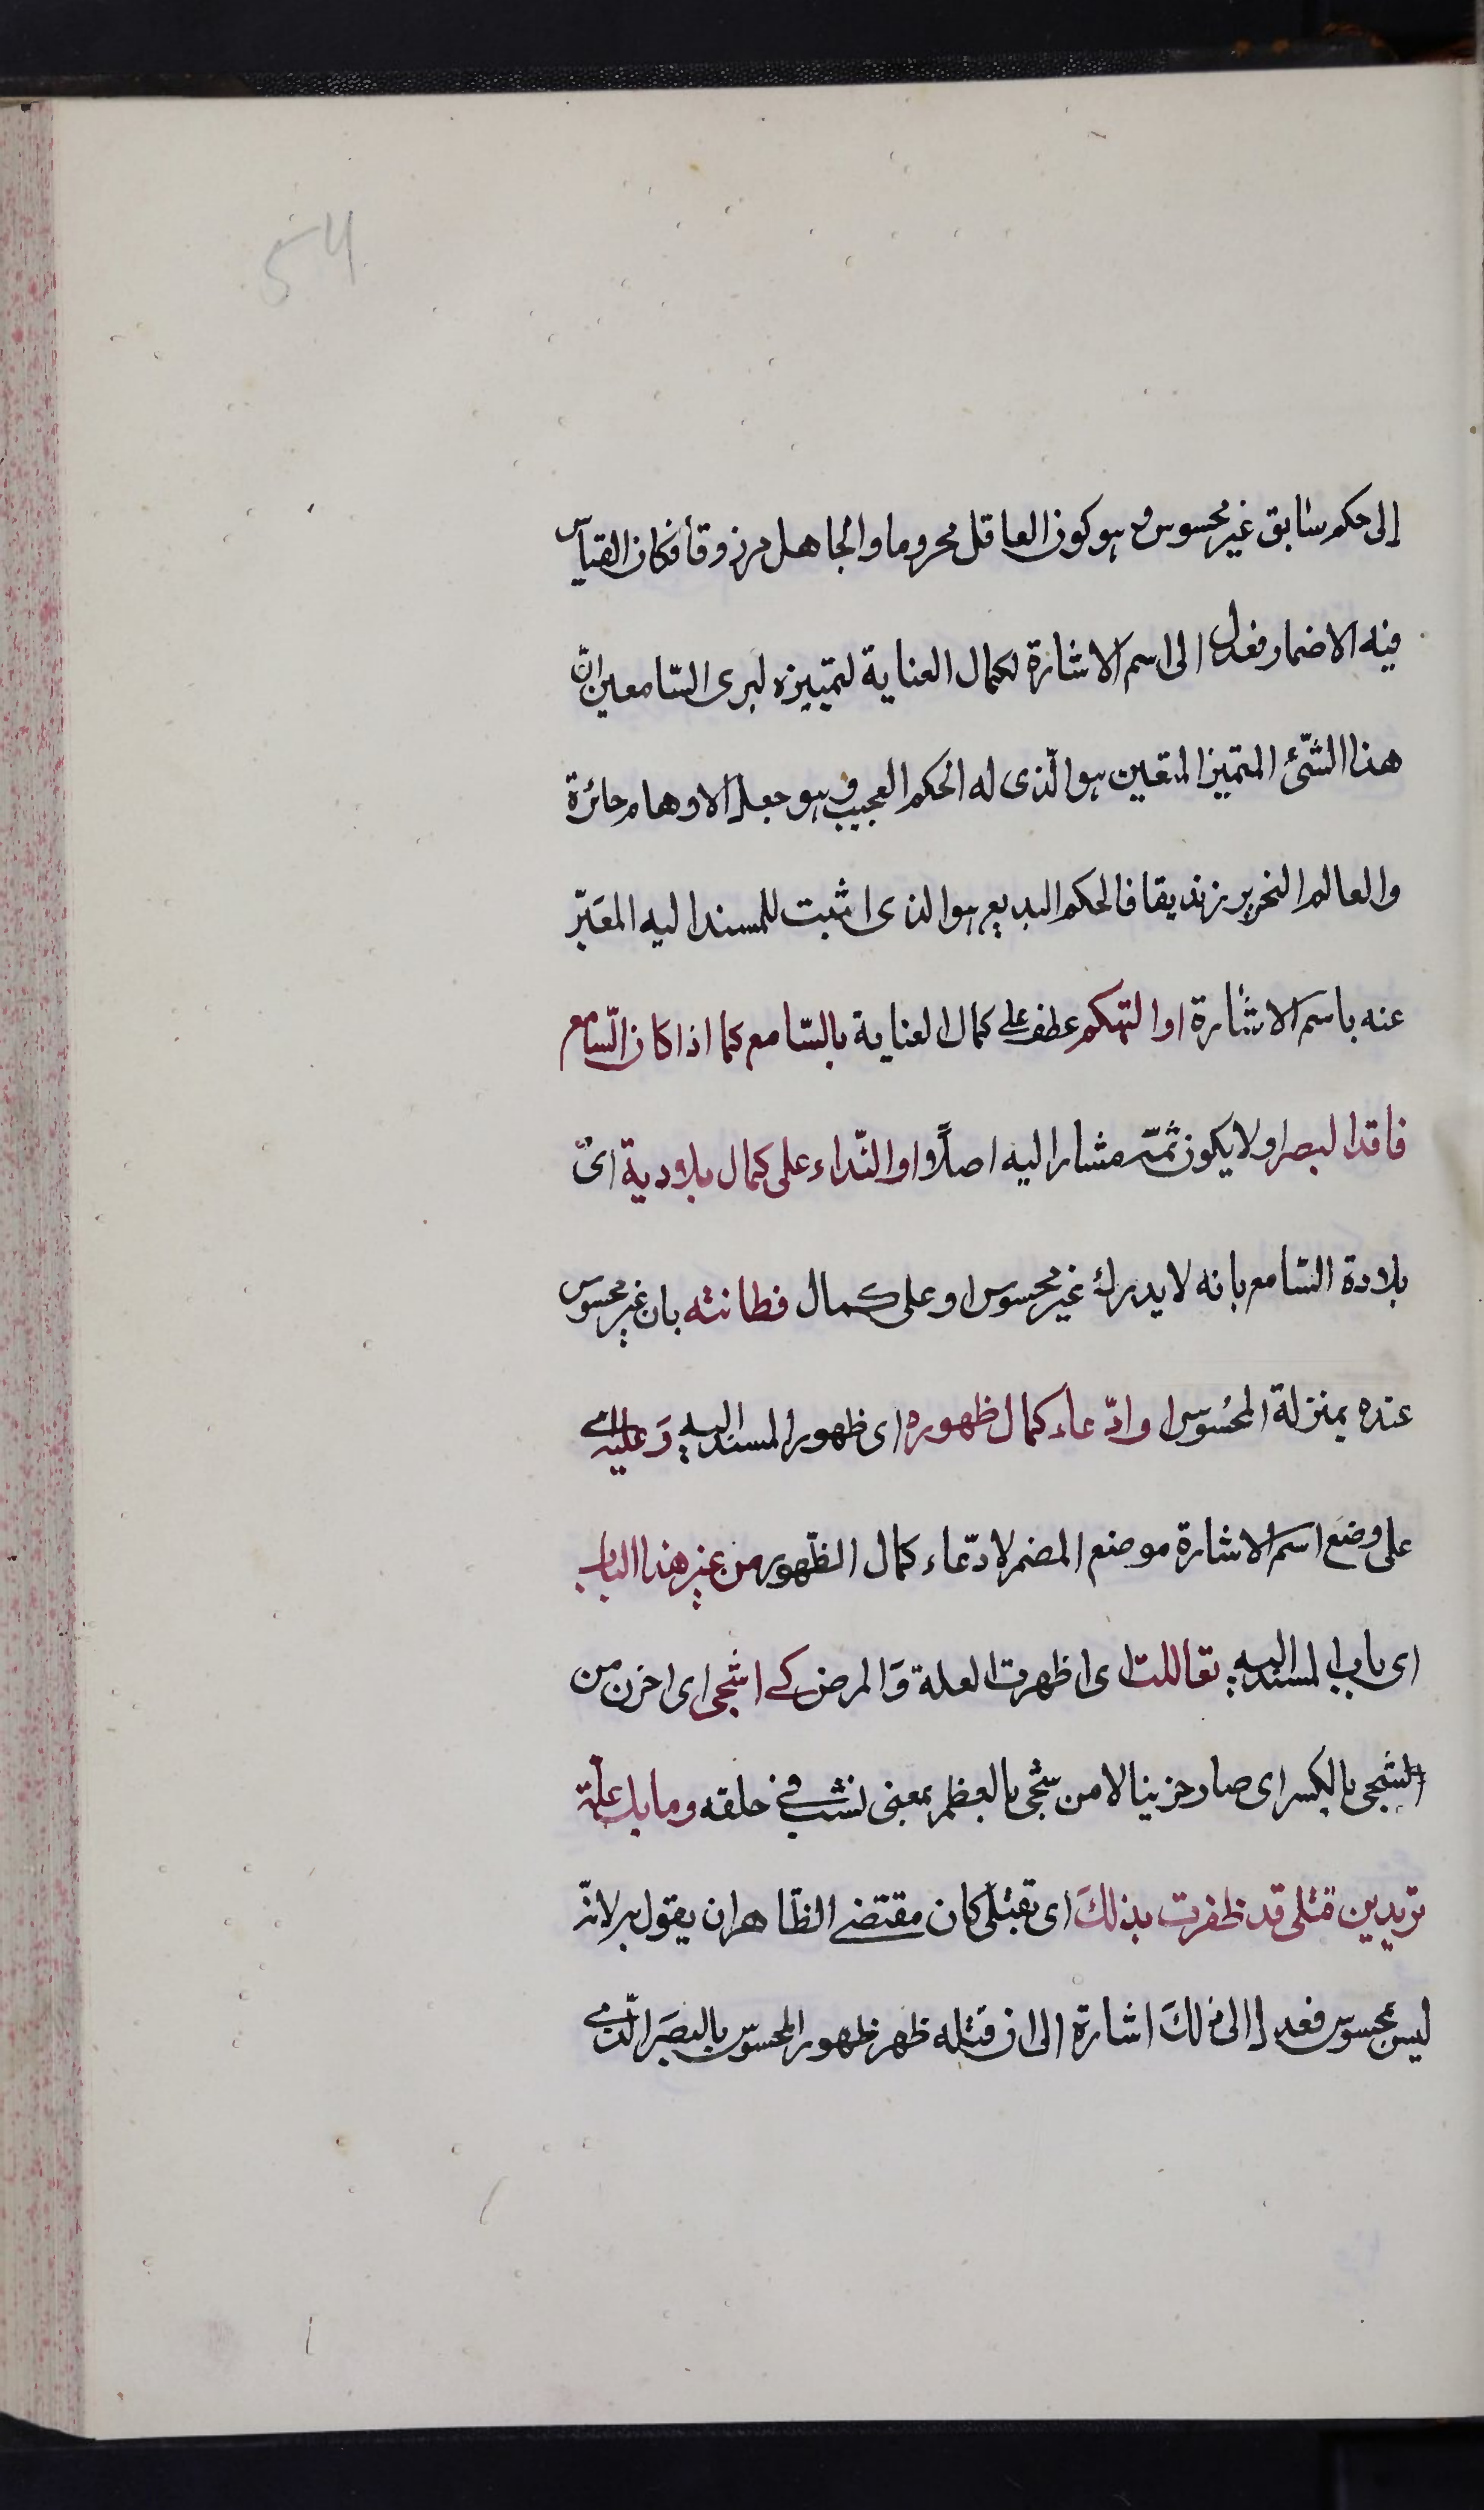 54
إلى حكم سابق غير محسوس و هو كون العاقل محروما والجاهل مرزوقا فكان القياس
فيه الاضمار فعدل الى اسم الاشارة لكمال العناية لتمييزه ليرى السّامعين انّ
هذا الشّئ المتميز المتعين هو الّذى له الحكم العجيب و هو جعل الاوهام حائرة
والعالم النحرير زنديقا فالحكم البديع هو الذى اثبت للمسند اليه المعَبّر
عنه باسم الاشارة او التهكم عطف على كمال العناية بالسّامع كما اذا كان السّامع
فاقد البصر او لا يكون ثمّه مشارا اليه اصلاً او النّداء على كمال بلادية اى
بلادة السّامع بانه لا يدرك غير محسوس او على كمال فطانته بان غير محسوس
عنده بمنزلة المحسُوس او ادّعاء كمال ظهوره اى ظهور المسند اليه وَعليه اى
على وضع اسم الاشارة موضع المضمر لادّعاء كمال الظّهور من غير هذا الباب
اى باب المسند اليه تعاللت اى اظهرت العلة وَالمرض كے اشجى اى احزن من
الشجى بالكسر اى صار حزينا لا من شجى بالعظم بمعنى نشب فى حلقه وما بك علّة
تريدين قتلى قد ظفرت بذلكَ اى بقتلى كان مقتضے الظّاهر ان يقول به لانّه
ليس بمحسوس فعدل الى ذلكَ اشارة الى ان قتله ظهر ظهور المحسوس بالبصَر الّذے